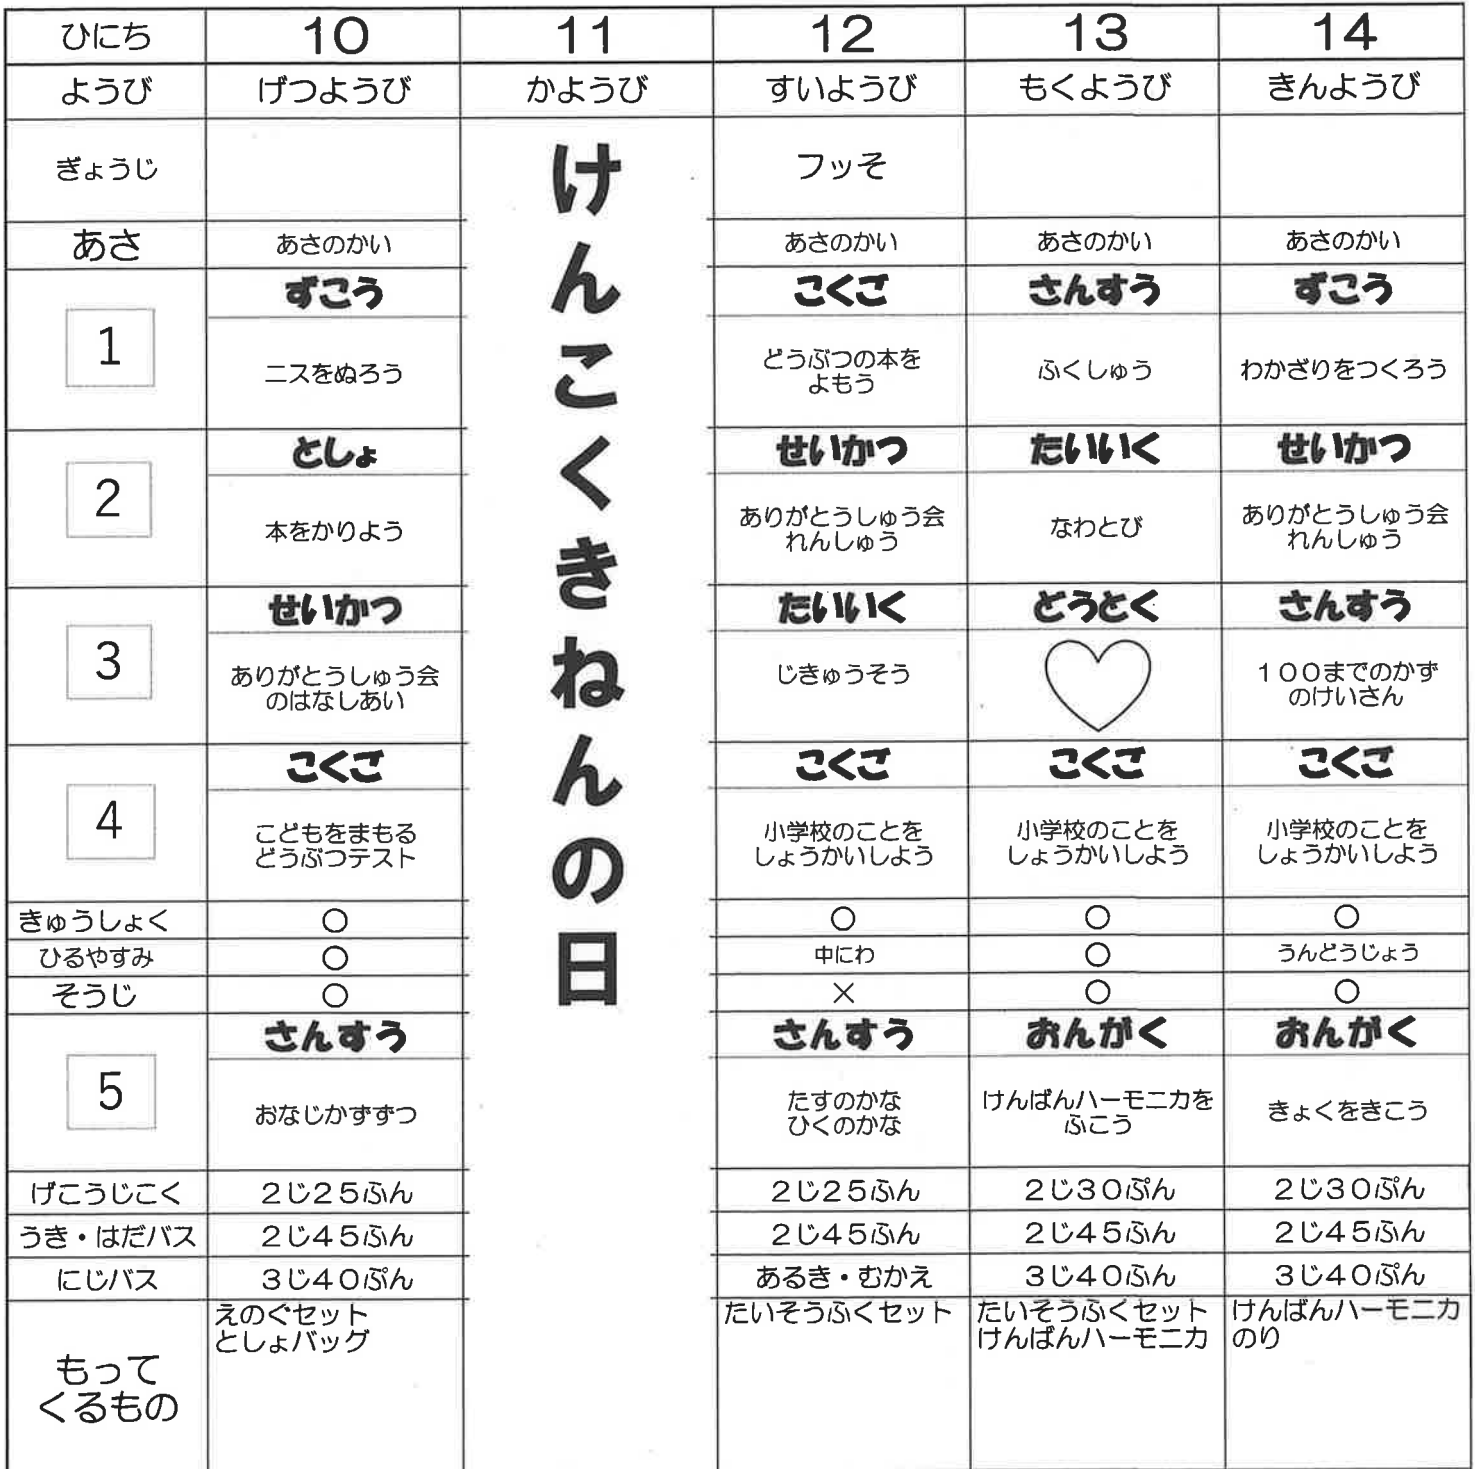 ひにち 10 11 12 13 14
ようび げつようび かようび すいようび もくようび きんようび
ぎょうじ フッそ
けんこくきねんの日
あさ あさのかい あさのかい あさのかい あさのかい
1 ずこう こくご さんすう ずこう
ニスをぬろう どうぶつの本を ふくしゅう わかざりをつくろう
よもう
2 としょ せいかつ たいいく せいかつ
本をかりよう ありがとうしゅう会 なわとび ありがとうしゅう会
れんしゅう れんしゅう
3 せいかつ たいいく どうとく さんすう
ありがとうしゅう会 じきゅうそう 100までのかず
のはなしあい のけいさん
4 こくご こくご こくご こくご
こどもをまもる 小学校のことを 小学校のことを 小学校のことを
どうぶつテスト しょうかいしよう しょうかいしよう しょうかいしよう
きゅうしょく ○ ○ ○ ○
ひるやすみ ○ 中にわ ○ うんどうじょう
そうじ ○ × ○ ○
5 さんすう さんすう おんがく おんがく
おなじかずずつ たすのかな けんばんハーモニカを きょくをきこう
ひくのかな ふこう
げこうじこく 2じ25ふん 2じ25ふん 2じ30ぷん 2じ30ぷん
うき・はだバス 2じ45ふん 2じ45ふん 2じ45ふん 2じ45ふん
にじバス 3じ40ぷん あるき・むかえ 3じ40ぷん 3じ40ぷん
もって
くるもの
えのぐセット たいそうふくセット たいそうふくセット けんばんハーモニカ
としょバッグ けんばんハーモニカ のり